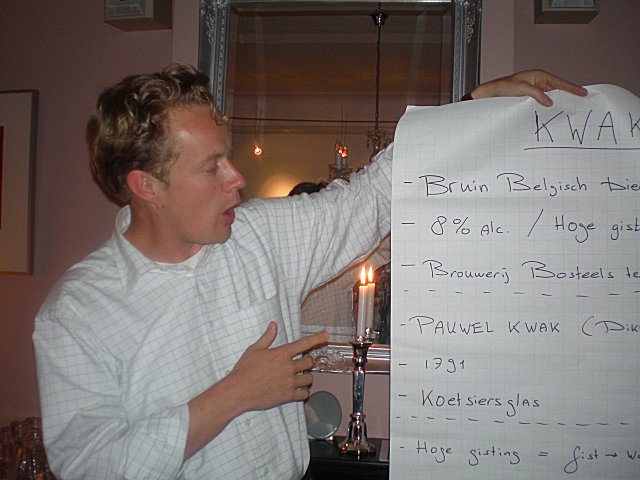 KWAK
- Bruin Belgisch
- 8% Alc. / Hoge gist
- Brouwerij Bosteels te
- PAUWEL KWAK (Dik
- 1791
- Koetsiersglas
- Hoge gisting = gist → w